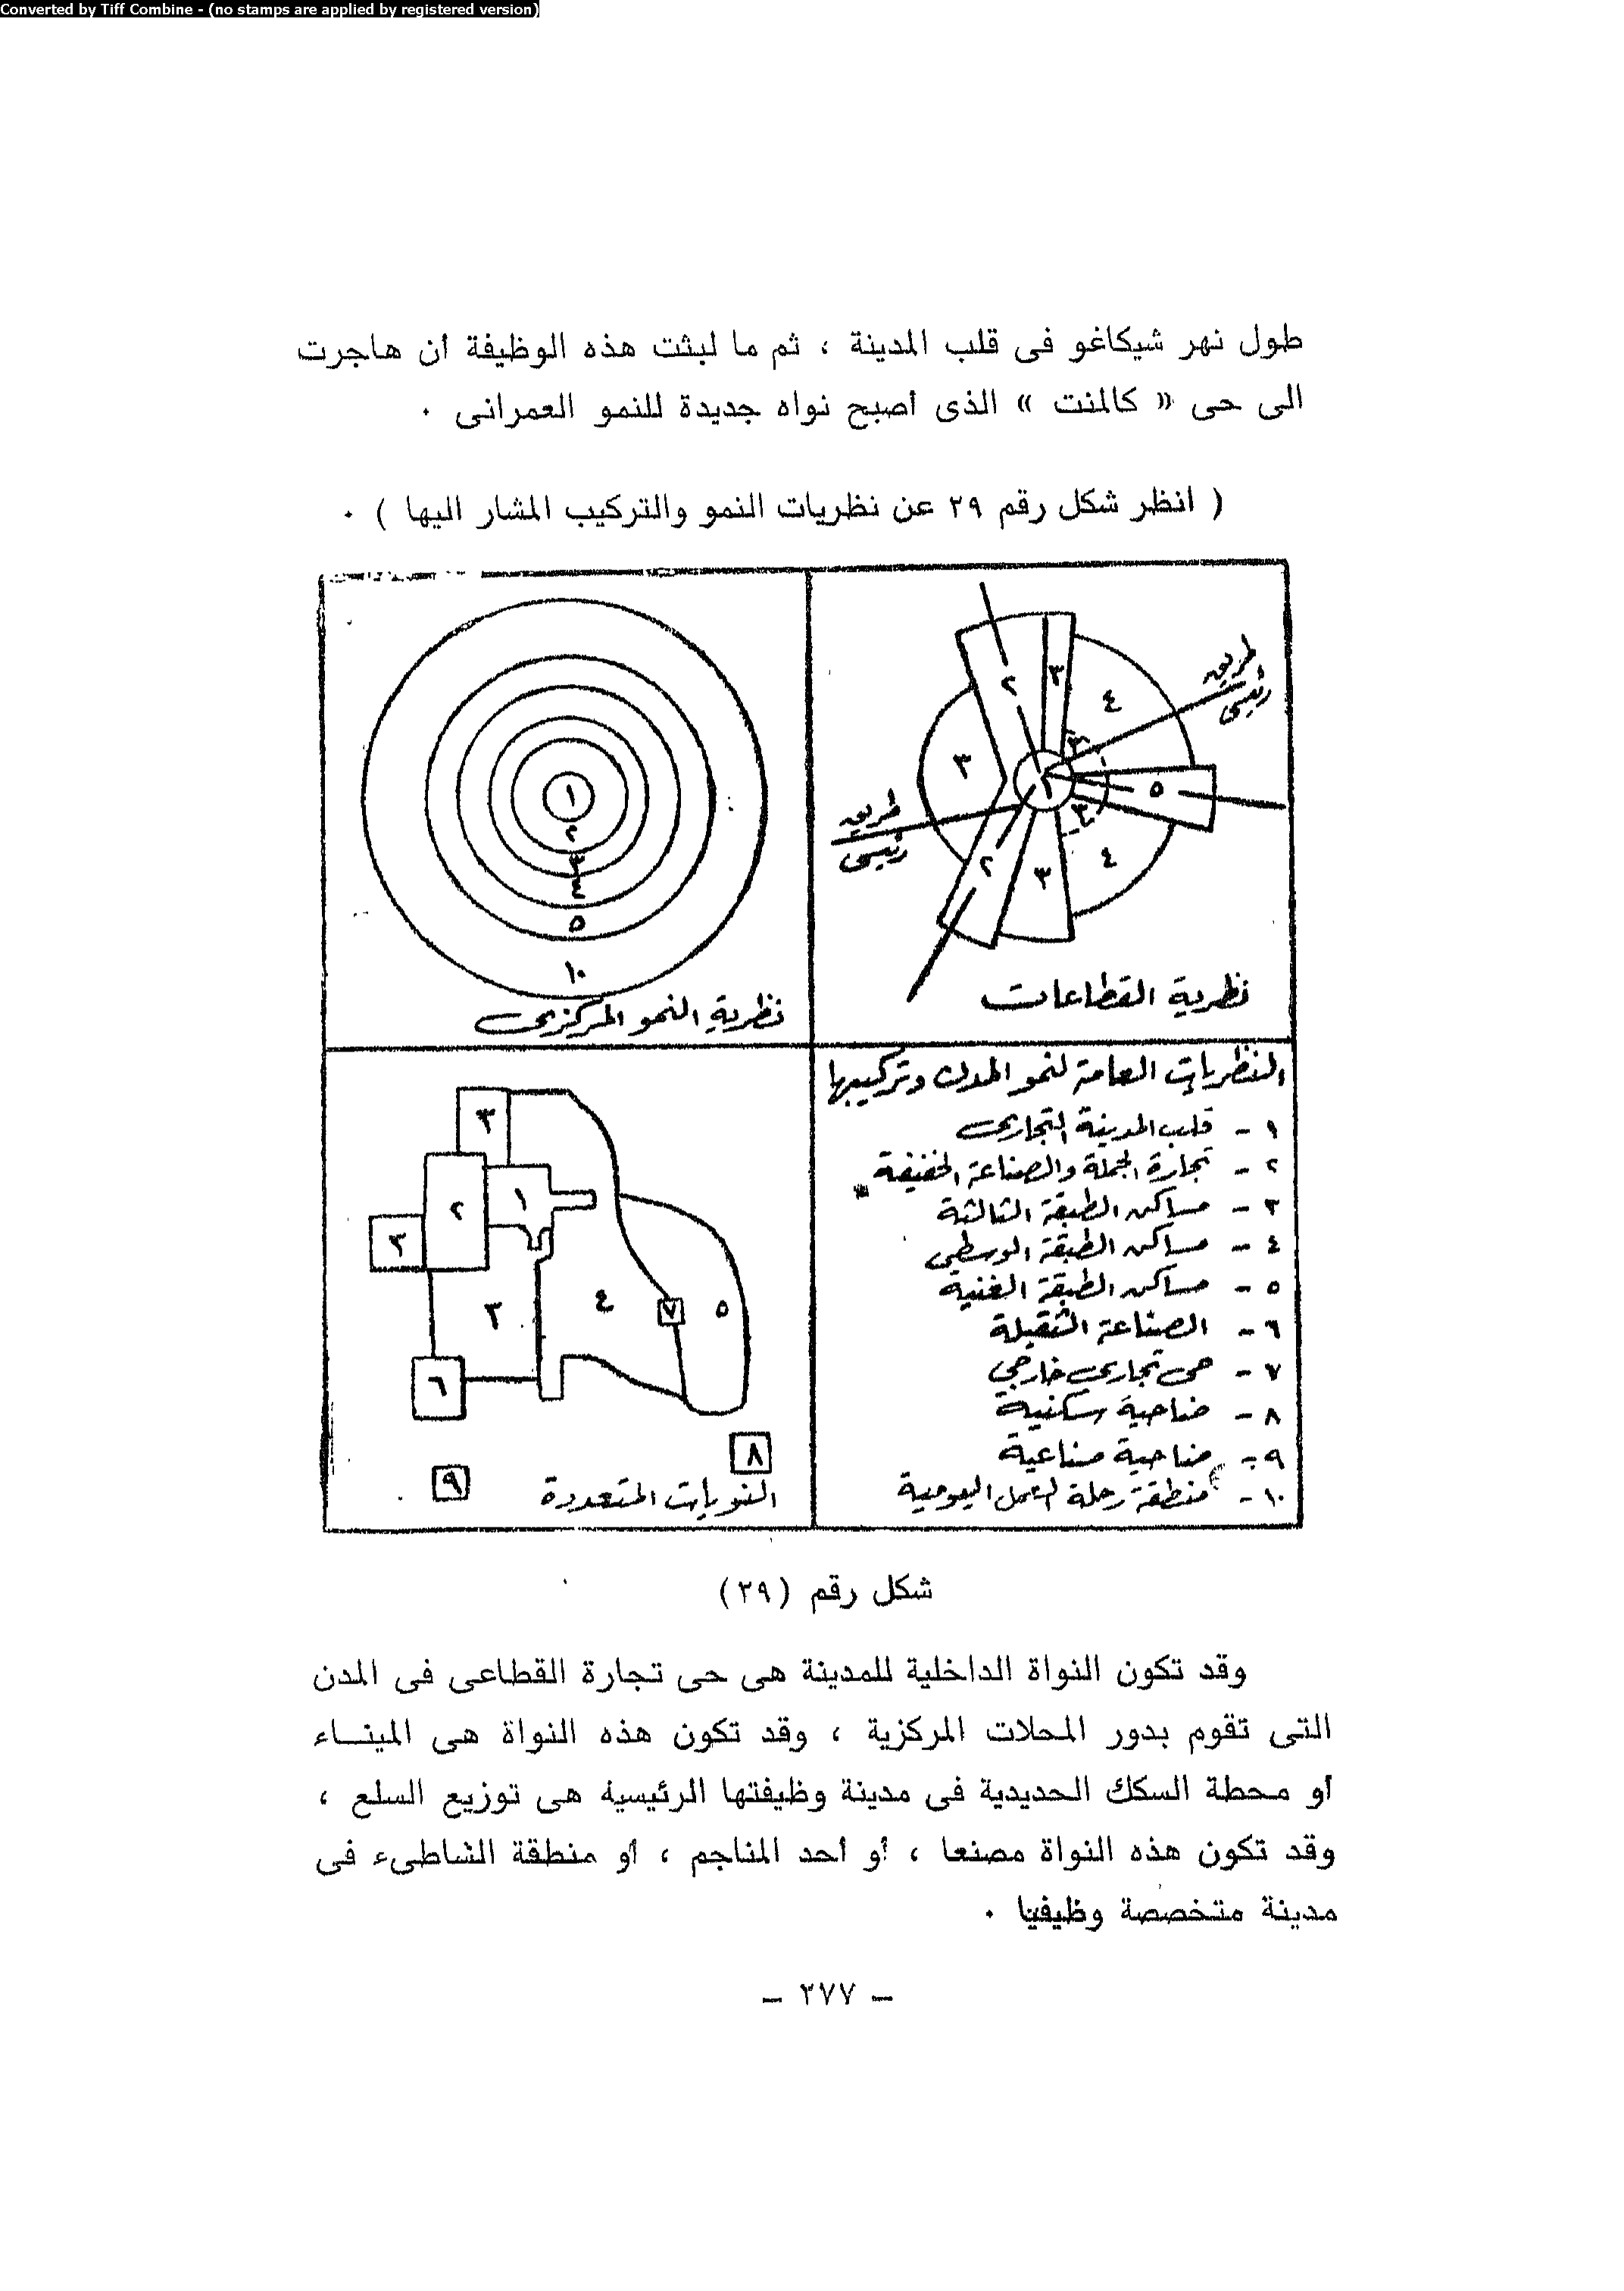 Converted by Tiff Combine - (no stamps are applied by registered version)
طول نهر شيكاغو فى قلب المدينة ، ثم ما لبثت هذه الوظيفة أن هاجرت
الى حى « كالمنت » الذى أصبح نواه جديدة للنمو العمرانى ٠
( انظر شكل رقم ٢٩ عن نظريات النمو والتركيب المشار اليها ) ٠
٢
٣
٤
طريق
رئيسى
٣
٣
١
٥
طريق
رئيسى
٣
٢
٣
٤
نظرية القطاعات
١
٢
٣
٤
٥
١٠
نظرية النمو المركزى
النظريات العامة لنمو المدن وتركيبها
١ - قلب المدينة التجارى
٢ - تجارة الجملة والصناعة الخفيفة
٣ - مساكن الطبقة الثالثة
٤ - مساكن الطبقة الوسطى
٥ - مساكن الطبقة الغنية
٦ - الصناعة الثقيلة
٧ - حى تجارى خارجى
٨ - ضاحية سكنية
٩ - ضاحية صناعية
١٠ - منطقة رحلة العمل اليومية
٣
١
٢
٣
٣
٤
٧
٥
٦
٨
٩
النويات المتعددة
شكل رقم (٢٩)
وقد تكون النواة الداخلية للمدينة هى حى تجارة القطاعى فى المدن
التى تقوم بدور المحلات المركزية ، وقد تكون هذه النواة هى المينـاء
أو محطة السكك الحديدية فى مدينة وظيفتها الرئيسية هى توزيع السلع ،
وقد تكون هذه النواة مصنعا ، أو أحد المناجم ، أو منطقة الشاطىء فى
مدينة متخصصة وظيفيا ٠
– ٢٧٧ –